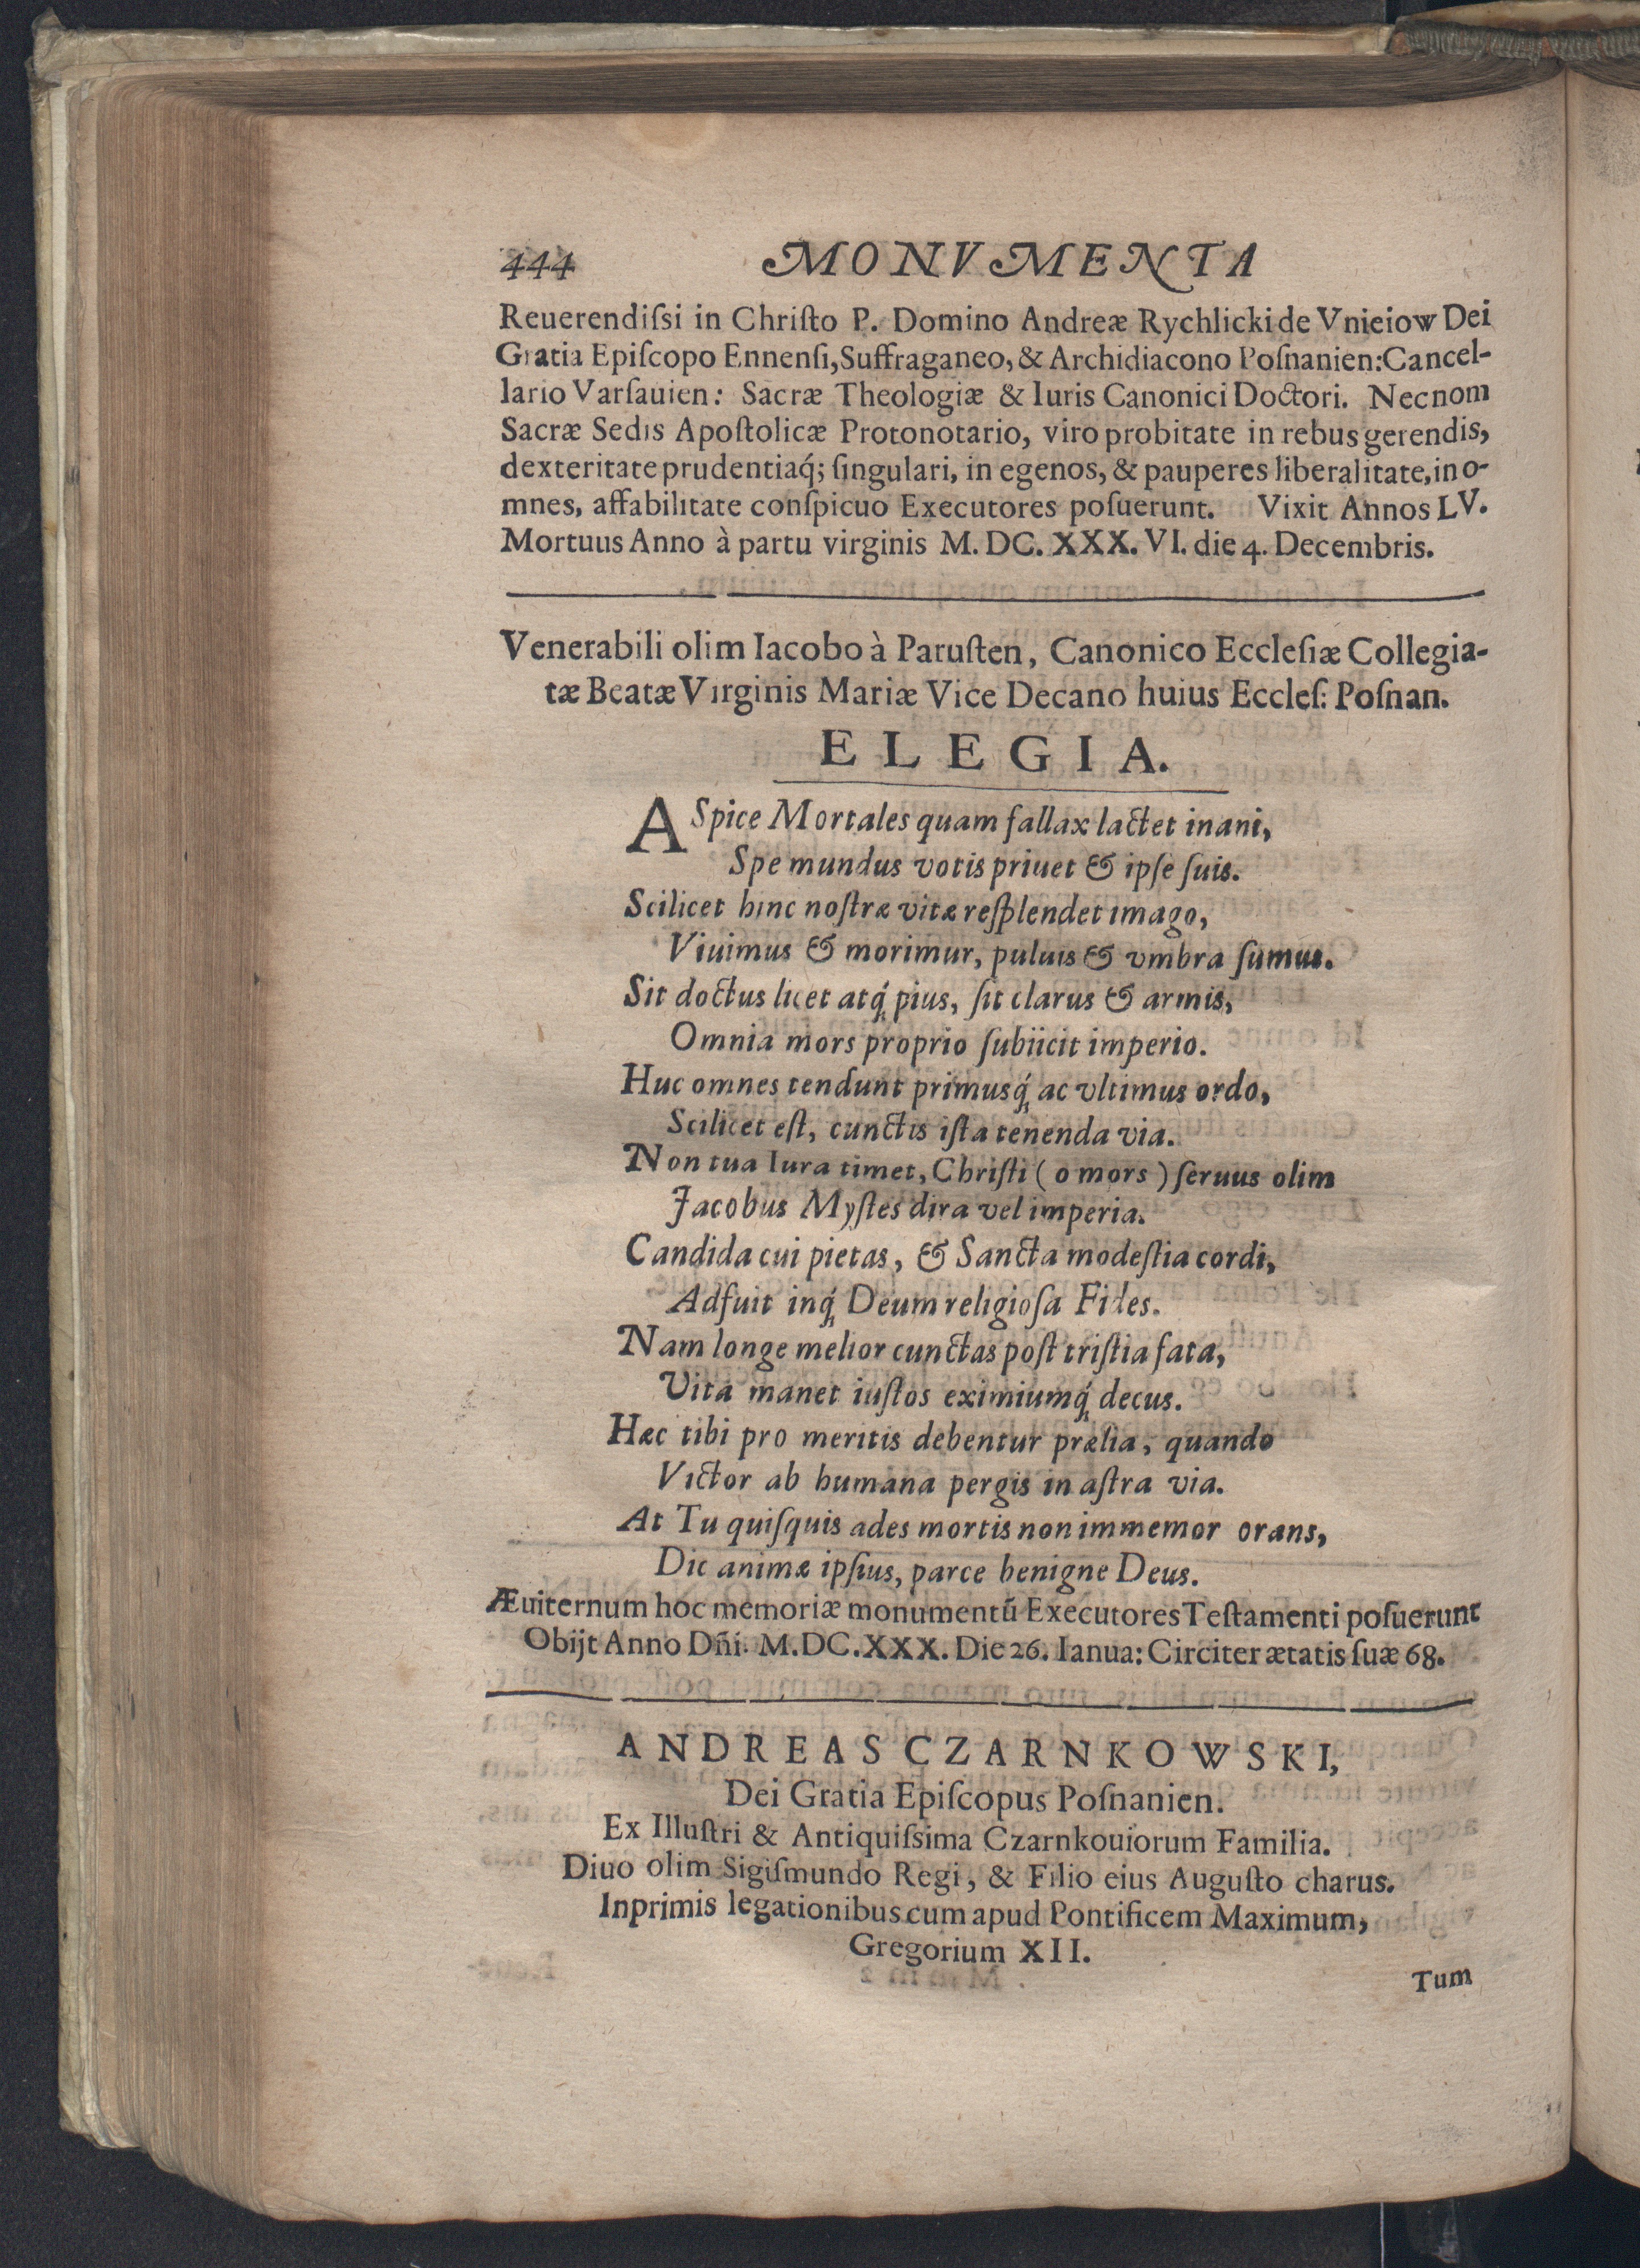 444 MONVMENTA
Reuerendiſsi in Chriſto P. Domino Andreæ Rychlicki de Vnieiow Dei
Gratia Epiſcopo Ennenſi, Suffraganeo, & Archidiacono Poſnanien: Cancel-
lario Varſauien: Sacræ Theologiæ & Iuris Canonici Doctori. Necnom
Sacræ Sedis Apoſtolicæ Protonotario, viro probitate in rebus gerendis,
dexteritate prudentiaq́; ſingulari, in egenos, & pauperes liberalitate, in o-
mnes, affabilitate conſpicuo Executores poſuerunt. Vixit Annos LV.
Mortuus Anno à partu virginis M. DC. XXX. VI. die 4. Decembris.
Venerabili olim Iacobo à Paruſten, Canonico Eccleſiæ Collegia-
tæ Beatæ Virginis Mariæ Vice Decano huius Eccleſ: Poſnan.
ELEGIA.
ASpice Mortales quam fallax lactet inani,
Spe mundus votis priuet & ipſe ſuis.
Scilicet hinc noſtræ vitæ reſplendet imago,
Viuimus & morimur, puluis & vmbra ſumus.
Sit doctus licet atq́ pius, ſit clarus & armis,
Omnia mors proprio ſubiicit imperio.
Huc omnes tendunt primusq́ ac vltimus ordo,
Scilicet eſt, cunctis iſta tenenda via.
Non tua Iura timet, Chriſti (o mors) ſeruus olim
Jacobus Myſtes dira vel imperia.
Candida cui pietas, & Sancta modeſtia cordi,
Adfuit inq́ Deum religioſa Fides.
Nam longe melior cunctas poſt triſtia fata,
Vita manet iuſtos eximiumq́ decus.
Hæc tibi pro meritis debentur prælia, quando
Victor ab humana pergis in aſtra via.
At Tu quiſquis ades mortis non immemor orans,
Dic animæ ipſius, parce benigne Deus.
Æuiternum hoc memoriæ monumentū Executores Teſtamenti poſuerunt
Obijt Anno Dñi. M.DC.XXX. Die 26. Ianua: Circiter ætatis ſuæ 68.
ANDREAS CZARNKOWSKI,
Dei Gratia Epiſcopus Poſnanien.
Ex Illuſtri & Antiquiſsima Czarnkouiorum Familia.
Diuo olim Sigiſmundo Regi, & Filio eius Auguſto charus.
Inprimis legationibus cum apud Pontificem Maximum,
Gregorium XII.
Tum